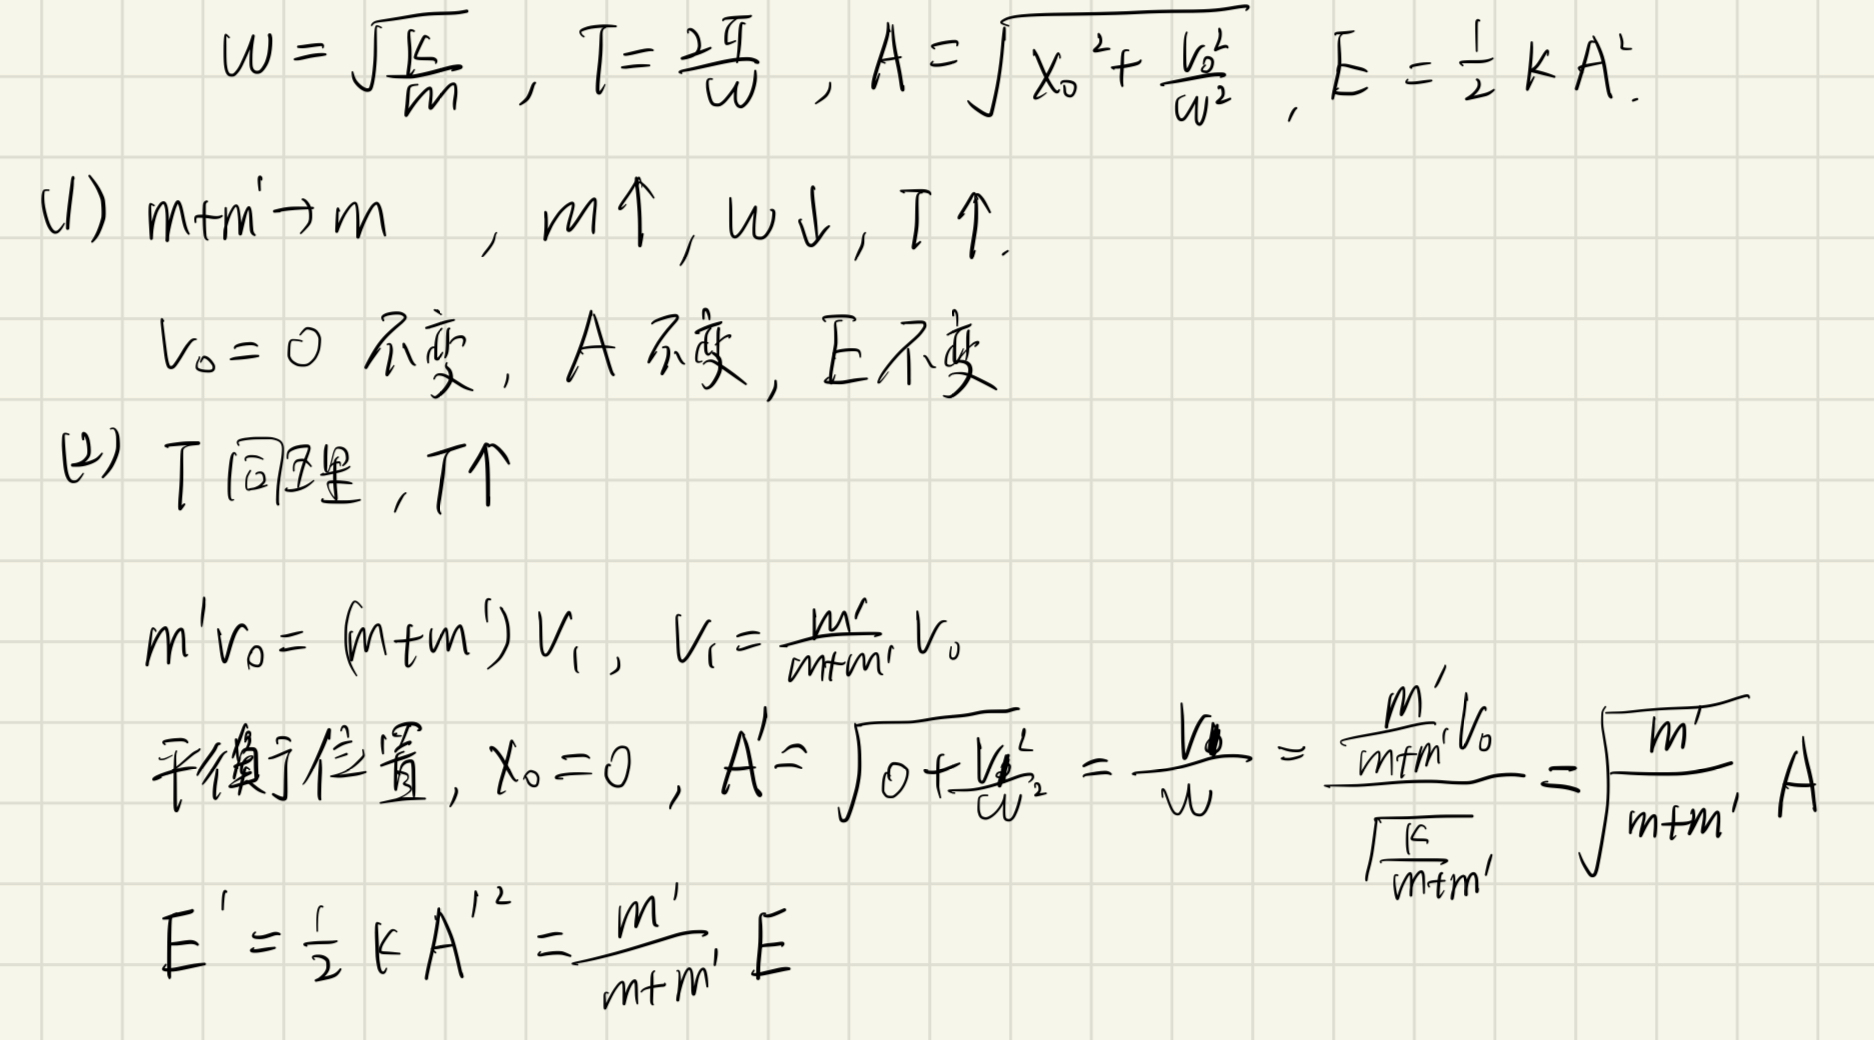 W = √(k/m) , T = 2π/W , A = √(x₀² + v₀²/W²) , E = 1/2 k A².
(1) m+m' → m , m↑ , W↓ , T↑.
V₀ = 0 不变, A 不变, E 不变
(2) T 同理 , T↑
m'v₀ = (m+m') V₁ , V₁ = m'/(m+m') V₀
平衡位置, x₀ = 0 , A' = √(0 + V₁²/W²) = V₁/W = (m'/(m+m') V₀)/√(k/(m+m')) = √(m'/(m+m')) A
E' = 1/2 k A'² = m'/(m+m') E